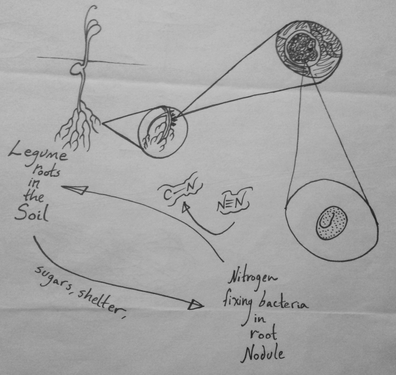 Legume
roots
in
the
Soil
C=N
N≡N
sugars, shelter,
Nitrogen
fixing bacteria
in
root
Nodule